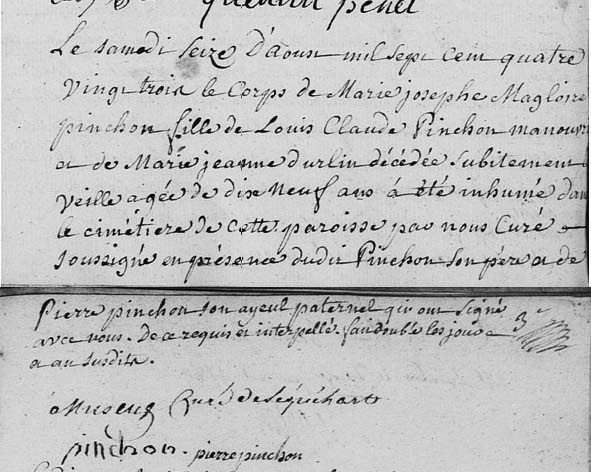 quevain penel
Le samedi seize D'aoust mil sept cent quatre
vingt trois le Corps de Marie josephe Magloire
pinchon fille de Louis Claude Pinchon manouvri
et de Marie jeanne durlin décédée subitement
veille agée de dix Neuf ans à été inhumé dan
le cimétiere de cette paroisse par nous Curé
soussigné en présence dudit Pinchon son pere et de
Pierre pinchon son ayeul paternel qui ont signé
avec nous. De ce requis et interpellé. fait double les jour
et an susdits.
Curé de sequehart
pinchon. pierre pinchon